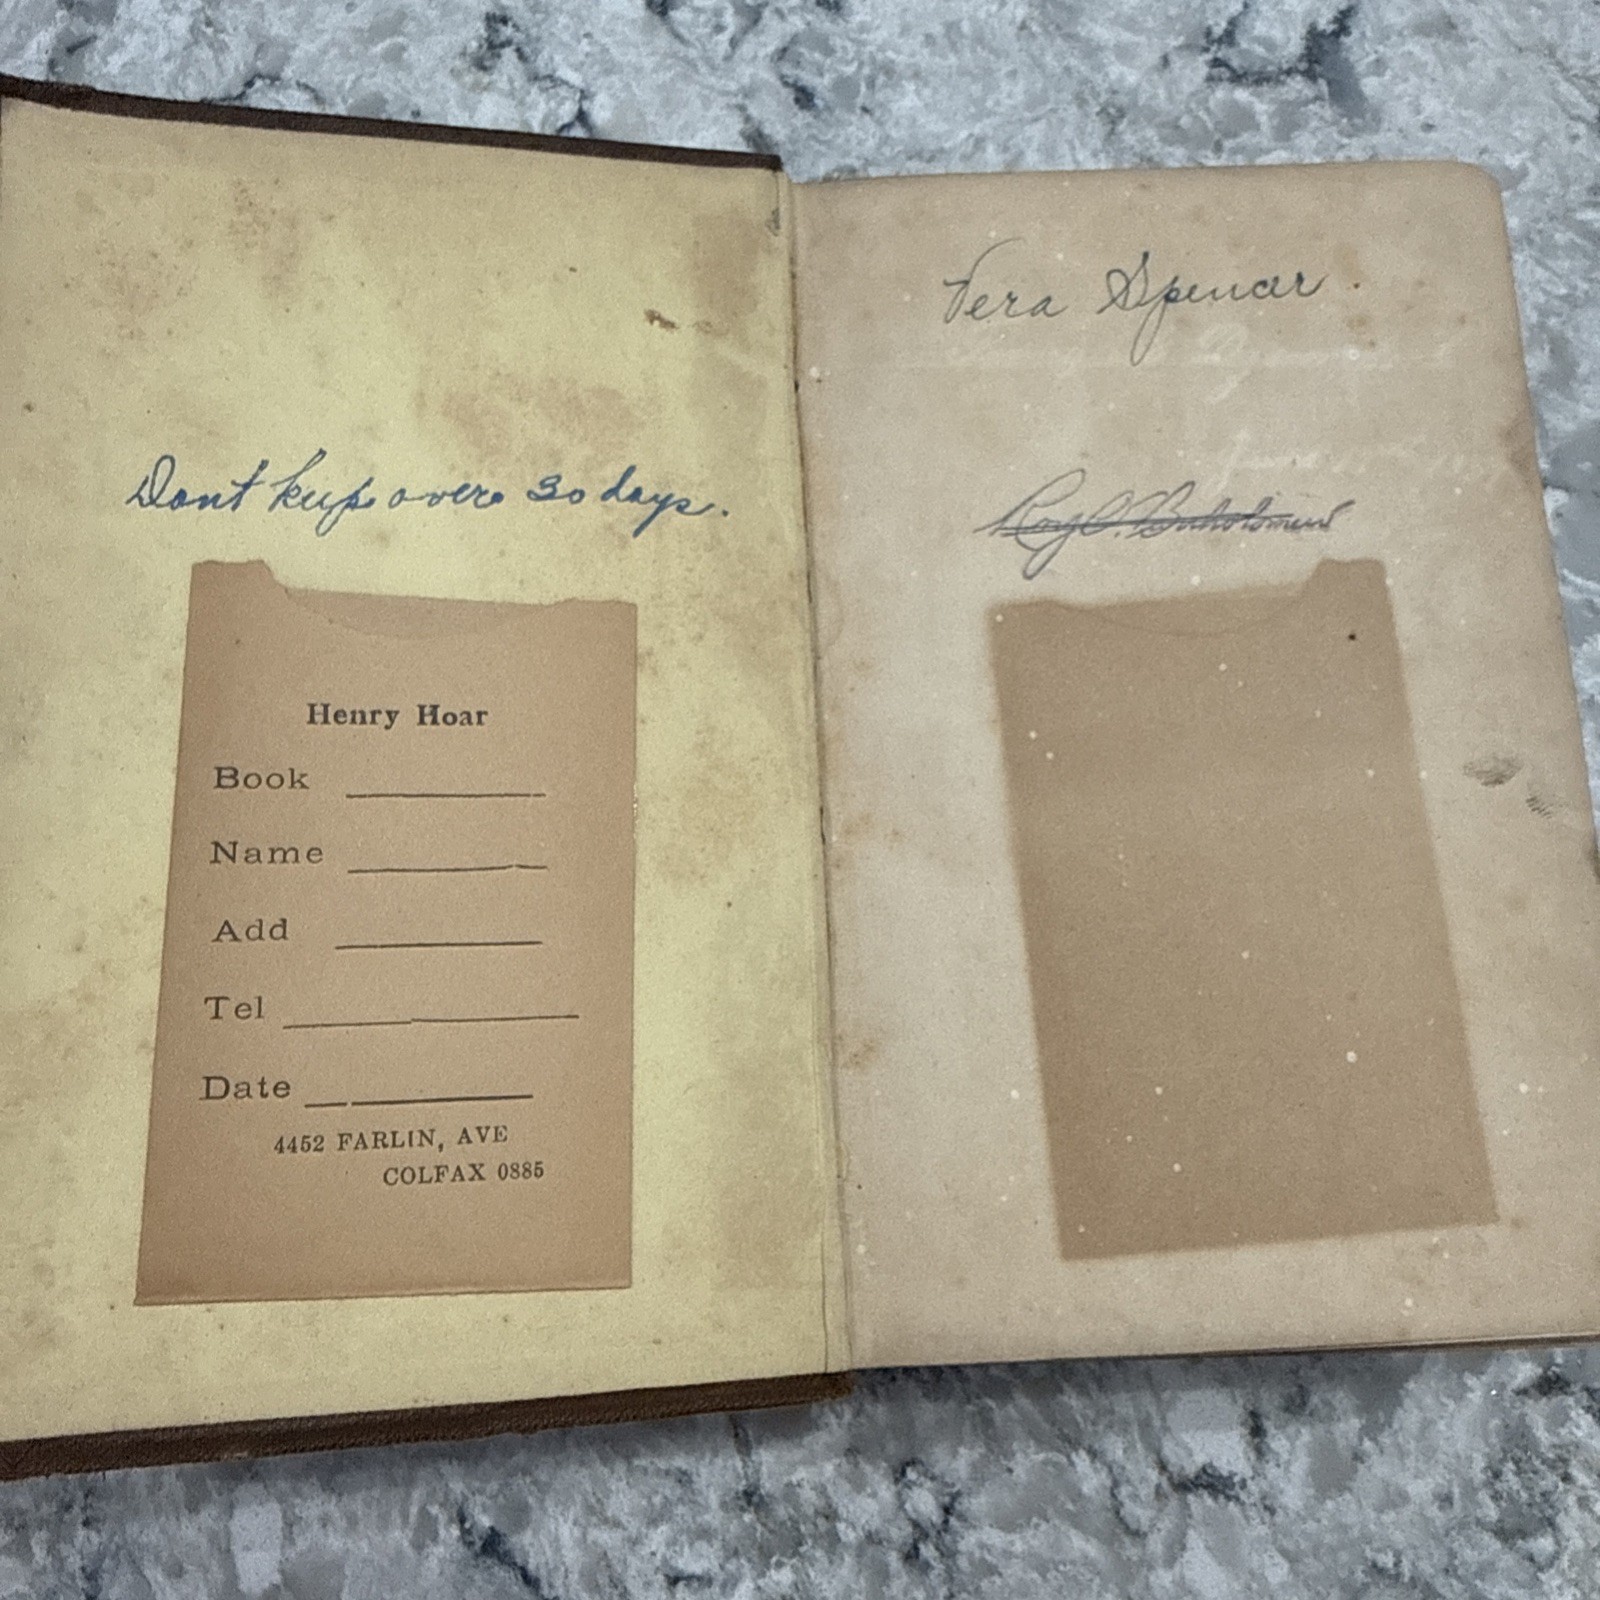 Dont keep over 30 days.
Henry Hoar
Book
Name
Add
Tel
Date
4452 FARLIN, AVE
COLFAX 0885
Vera Spencer.
Roy C. Bartholomew